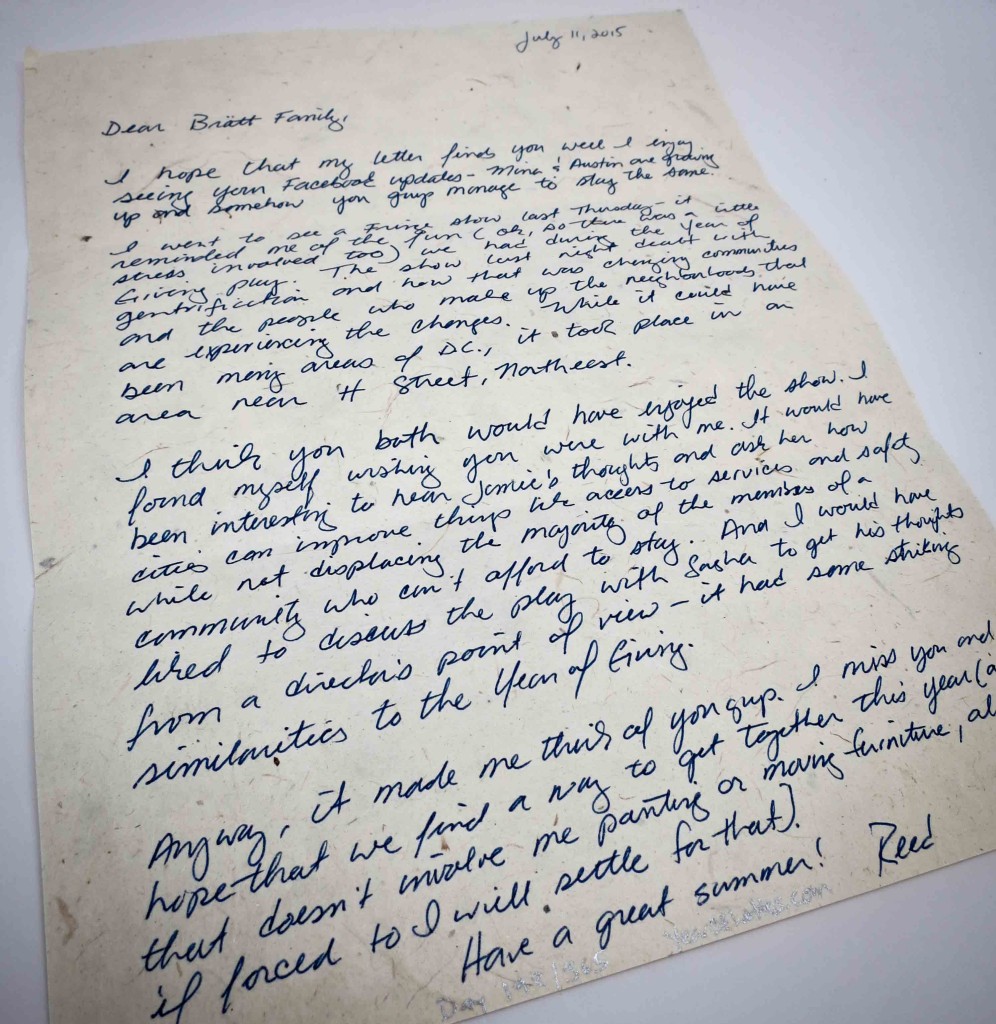 July 11, 2015
Dear Brätt Family,
I hope that my letter finds you well. I enjoy
seeing your Facebook updates - Mina & Austin are growing
up and somehow you guys manage to stay the same.
I went to see a Fringe show last Thursday - it
reminded me of the fun (ok, so there was a little
stress involved too) we had during the Year of
Giving play. The show last night dealt with
gentrifiction and how that was changing communities
and the people who make up the neighborhoods that
are experiencing the changes. While it could have
been many areas of DC., it took place in an
area near H Street, Northeast.
I think you both would have enjoyed the show. I
found myself wishing you were with me. It would have
been interesting to hear Jamie's thoughts and ask her how
cities can improve things like access to services and safety
while not displacing the majority of the members of a
community who can't afford to stay. And I would have
liked to discuss the play with Sasha to get his thoughts
from a director's point of view - it had some striking
similarities to the Year of Giving.
Anyway, it made me think of you guys. I miss you and
hope that we find a way to get together this year (a
that doesn't involve me painting or moving furniture, al
if forced to I will settle for that).
Have a great summer! Reed
Day /365